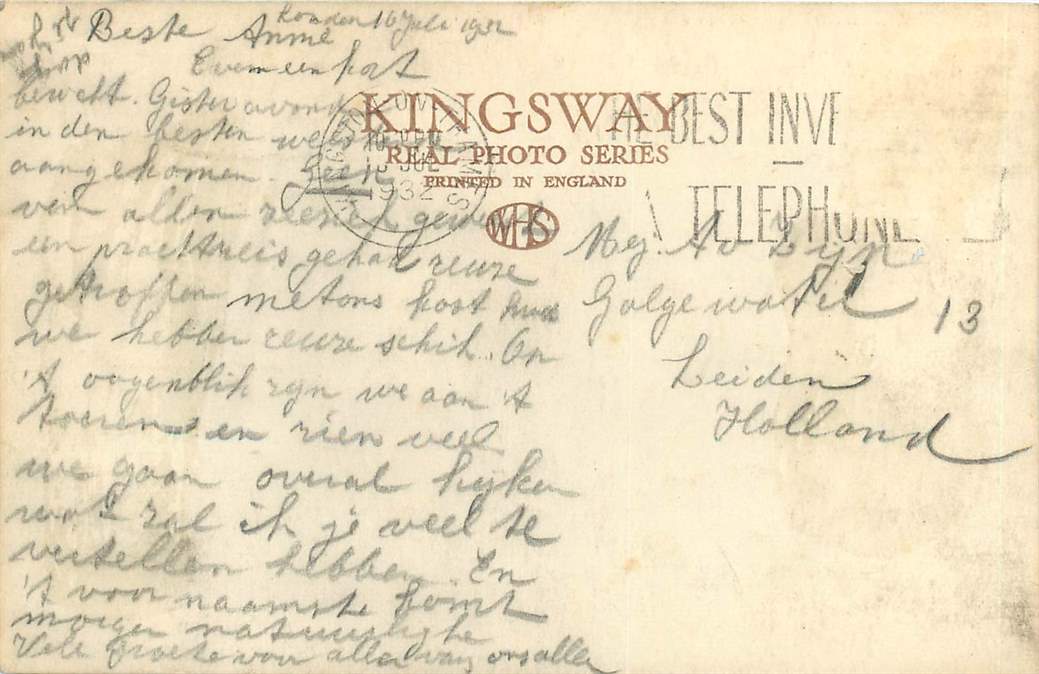 Londen 16 Juli 1932
Beste Annie
Even een kort
bewelt. Gister avond
in den besten welstand
aangekomen. Geen
van allen zeeziek geweest
een prachtreis gehad reuze
getroffen met ons kost huis
we hebben reuze schik. On
't oogenblik zijn we aan 't
toeren en zien veel
we gaan overal kijken
wat zal ik je veel te
vertellen hebben. En
't voornaamste komt
morgen natuurlijke
Vele groeten voor allen van ons allen
KINGSWAY
REAL PHOTO SERIES
PRINTED IN ENGLAND
WHS
KINGSTON-UPON-THAMES
JUL
1932
THE BEST INVE
TELEPHONE
Mej. A v Zijn
Galgewater 13
Leiden
Holland